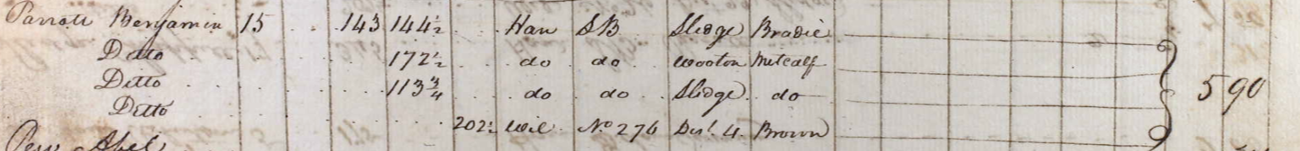 Parrott Benjamin 15 143 144½ Han S B Sledge Bradie
Ditto 172½ do do Wooton Metcalf
Ditto 113¾ do do Sledge do 590
Ditto 202½ Wil No 276 Dist. 4 Brown
Pew Abel